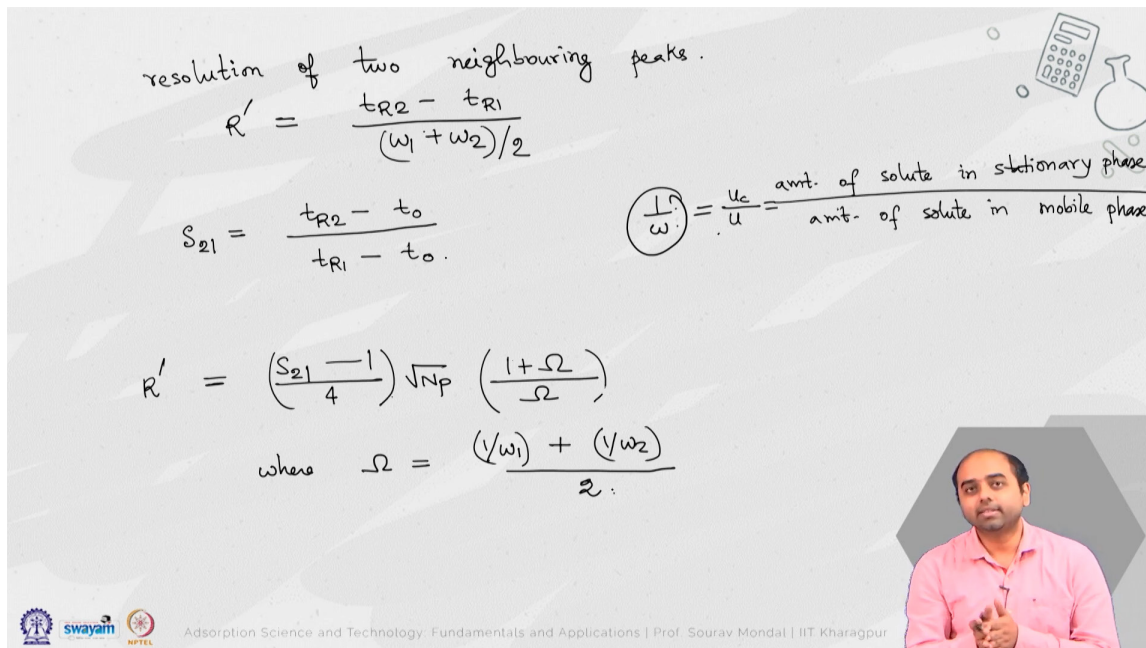 resolution of two neighbouring peaks.
R' = (tR2 − tR1) / ((ω1 + ω2)/2)
S21 = (tR2 − to) / (tR1 − to).
1/ω = uc/u = amt. of solute in stationary phase / amt. of solute in mobile phase
R' = ((S21 − 1)/4) √Np ((1 + Ω)/Ω)
where Ω = ((1/ω1) + (1/ω2)) / 2.
swayam NPTEL Adsorption Science and Technology: Fundamentals and Applications | Prof. Sourav Mondal | IIT Kharagpur